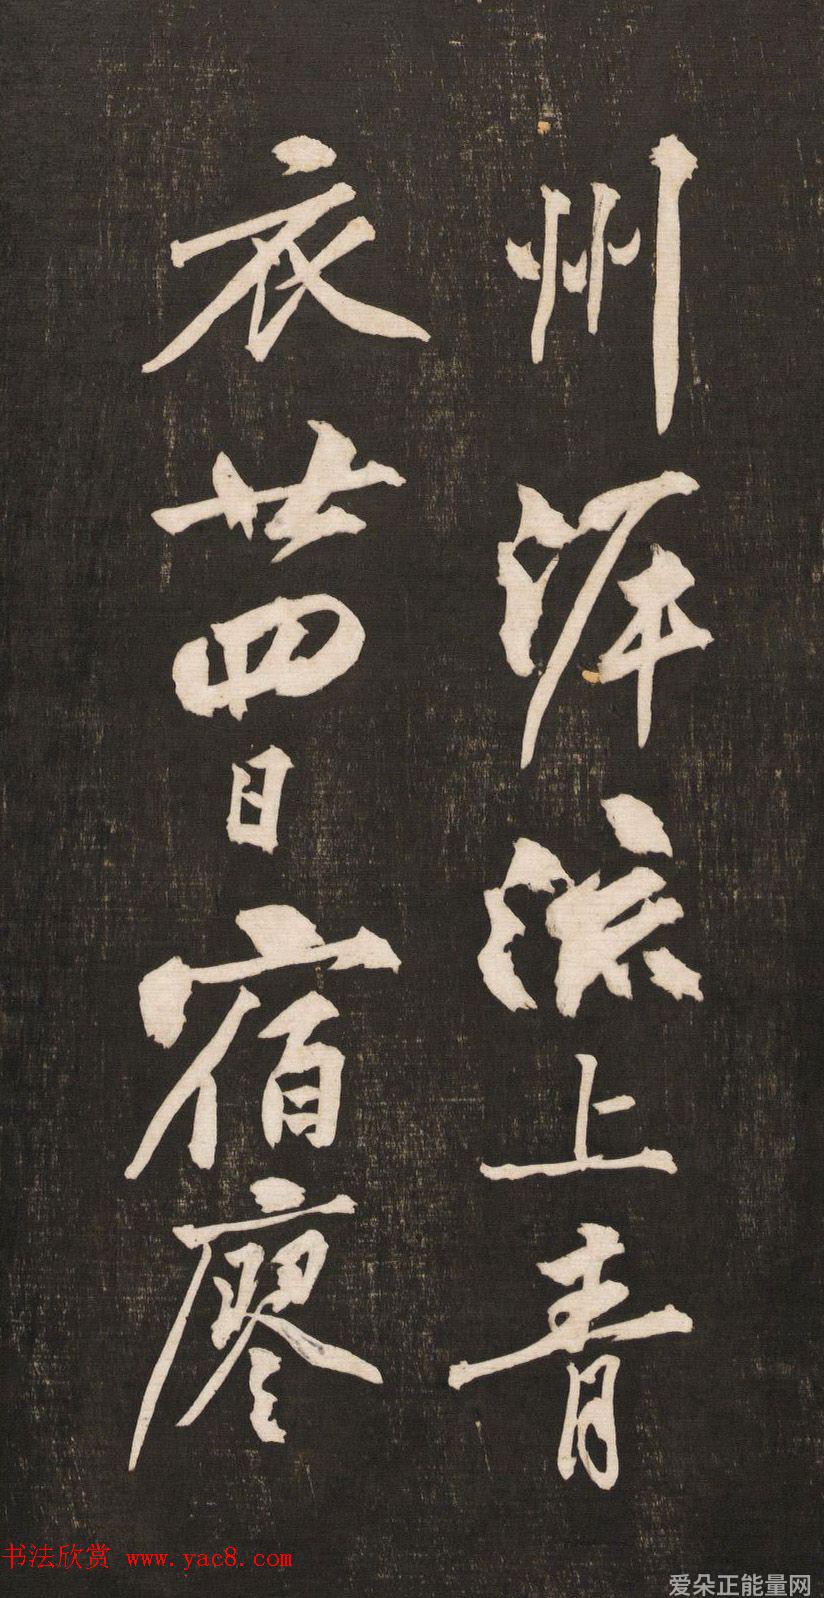 州泝流上青
衣廿四日宿廖
书法欣赏 www.yac8.com
爱朵正能量网